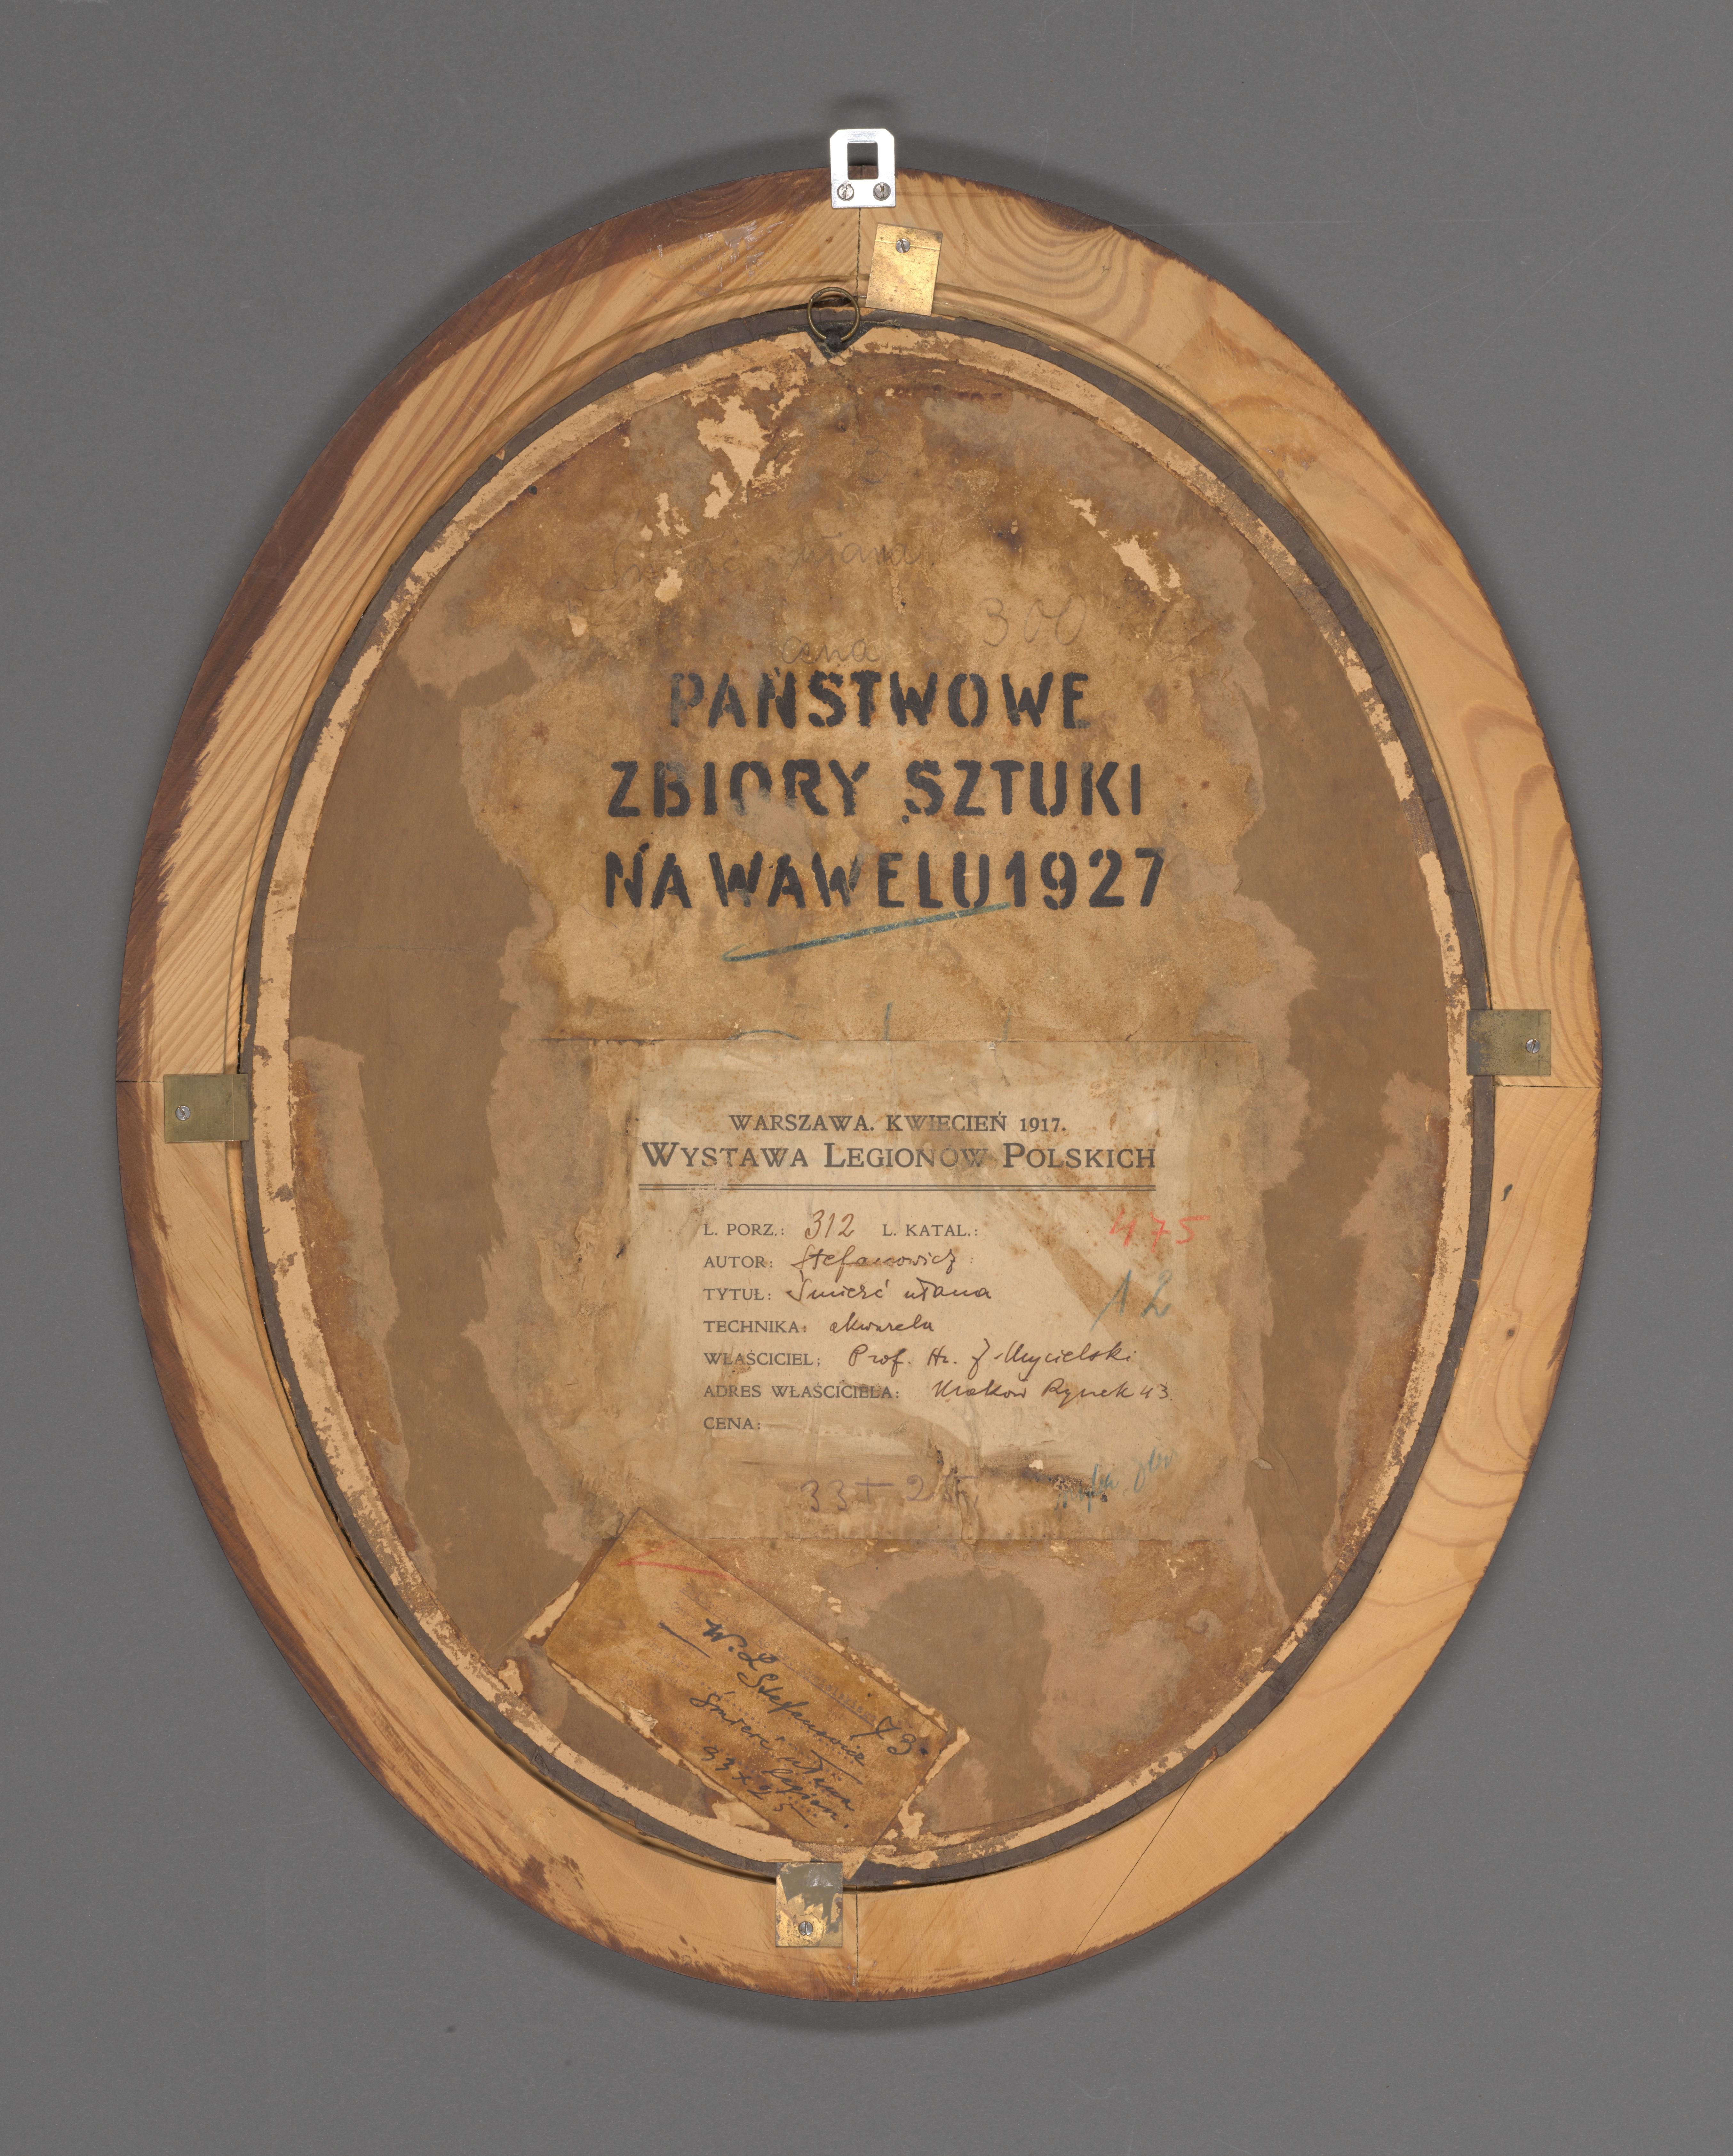 Śmierć ułana
300
cena
PAŃSTWOWE
ZBIORY SZTUKI
NA WAWELU 1927
WARSZAWA. KWIECIEŃ 1917.
WYSTAWA LEGIONÓW POLSKICH
L. PORZ.: 312 L. KATAL.: 475
AUTOR: Stefanowicz
TYTUŁ: Śmierć ułana
12
TECHNIKA: akwarela
WŁAŚCICIEL: Prof. Hr. J. Mycielski
ADRES WŁAŚCICIELA: Krakow Rynek 43.
CENA:
33 + 25
73.
W. L Stefanowicz
Śmierć ułana
legion.
33 x 25